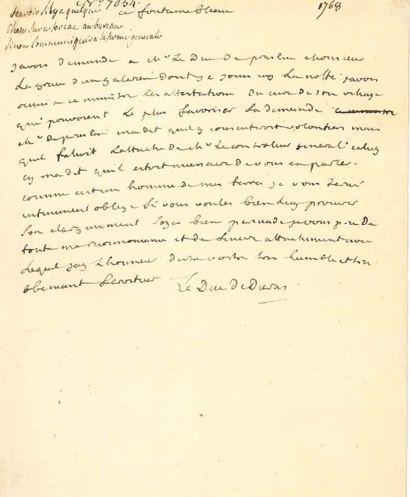 N° 7034.
a fontainebleau 1768
Javois demandé a Mr Le Duc de praslin Monsieur
La grace d'un galerien dont je joins icy La notte javois
remis a ce ministre les attestations du curé de son village
qui pouvoient Le plus favoriser La demande
Mr de praslin ma dit quil y consentiroit volontiers mais
quil falloit Lattache de Mr Le controlleur general celuy
cy ma dit quil etoit necessaire de vous en parler.
comme cest un homme de mes terres je vous serai
infiniment obligé si vous voulés bien luy procurer
son elargissement Soyés bien persuadé je vous prie de
toute ma reconnoissance et du sincere attachement avec
Lequel jay Lhonneur detre votre tres humble et tres
obeissant Serviteur
Le Duc de Duras